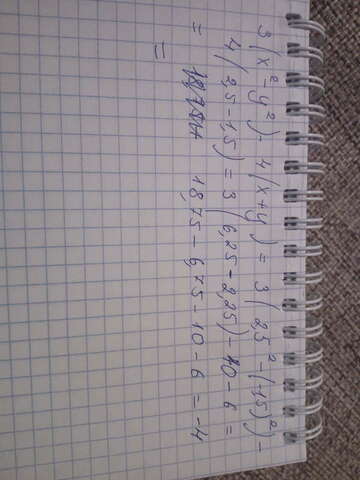 3(x²-y²)-4(x+y)=3(2,5²-(-1,5)²)-
4(2,5-1,5)=3(6,25-2,25)-10-6=
= 18,75-6,75-10-6=-4
=